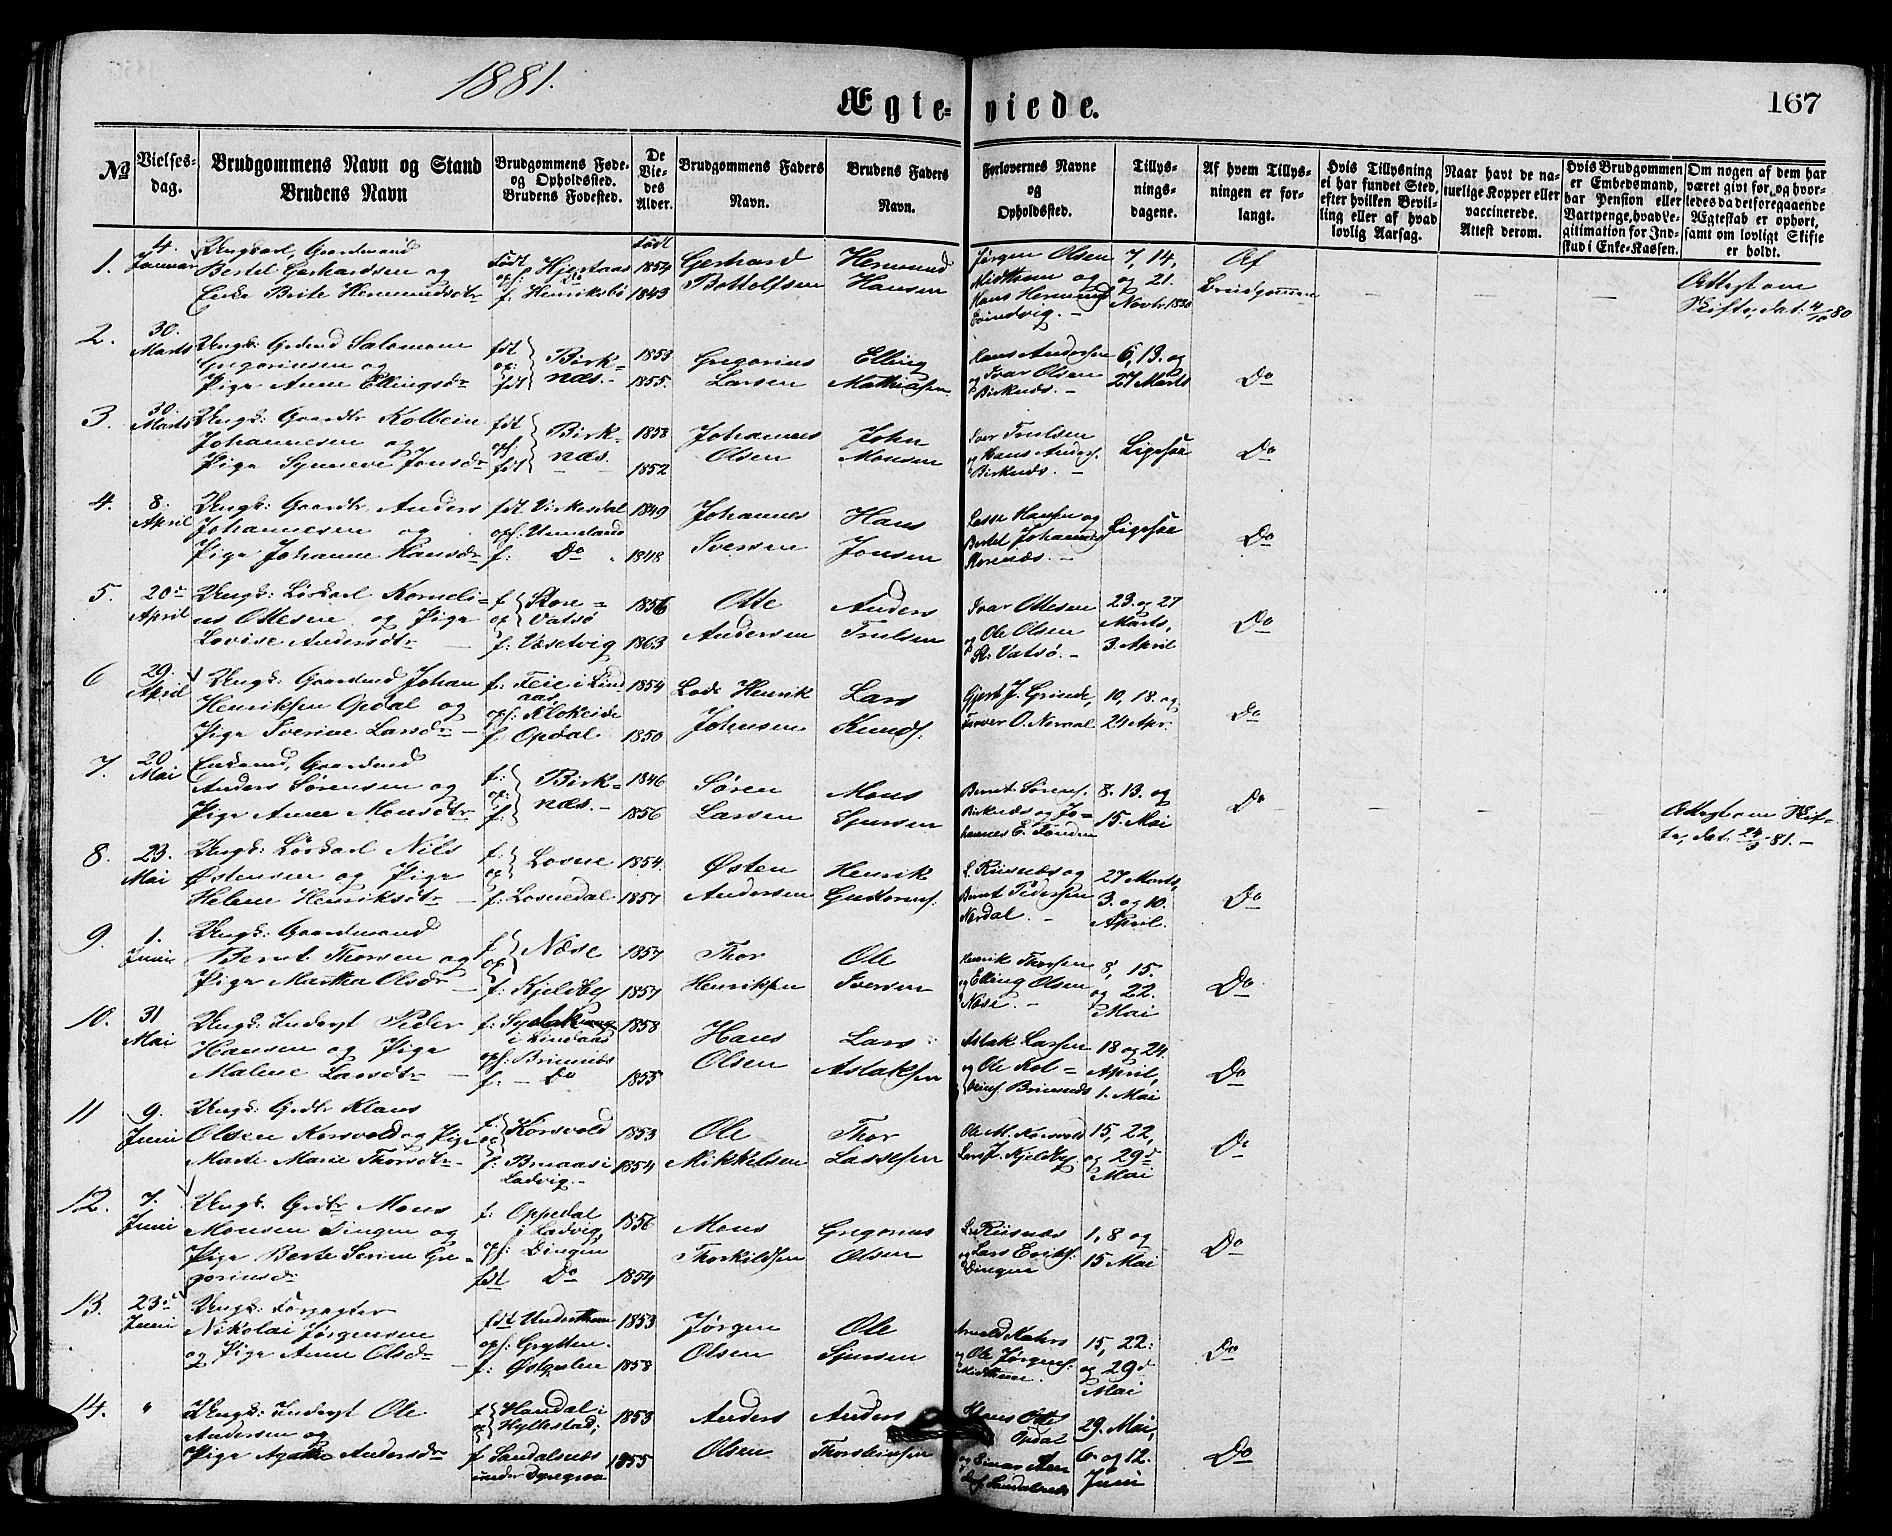 1881.
Ægteviede.
167
No
Vielsesdag.
Brudgommens Navn og Stand
Brudens Navn
Brudgommens Føde-
og Opholdssted.
Brudens Fødested.
De
Vie-
des
Alder.
Brudgommens Faders
Navn.
Brudens Faders
Navn.
Forlovernes Navne
og
Opholdssted.
Tillys-
nings-
dagene.
Af hvem Tillys-
ningen er for-
langt.
Hvis Tillysning
ei har fundet Sted,
efter hvilken Bevil-
ling eller af hvad
lovlig Aarsag.
Naar havt de na-
turlige Kopper eller
vaccinerede.
Attest derom.
Hvis Brudgommen
er Embedsmand,
har Pension eller
Vartpenge, hvad Le-
gitimation for Ind-
skud i Enke-Kassen.
Om nogen af dem har
været givt før, og hvor-
ledes da det foregaaende
Ægteskab er ophørt,
samt om lovligt Skifte
er holdt.
1. 4. Januar
Ungkarl, Gaardmand
Bertel Gerhardsen og
Enke Brite Hermundsdtr
født Hjertaas
op: Do
f: Henriksbø
født
1854
1843
Gerhard
Bottolfsen
Hermund
Hansen
Jørgen Olsen
Midthun og
Hans Hermund
Eivindvig. -
7, 14,
og 21.
Novbr 1880
Af
Brudgommen
Attest om
Skifte, dat. 4/10 80
2. 30. Marts
Ungk: Grdmd Salomon
Gregoriusen og
Pige Anne Ellingsdr
født
op:
født
Birk-
næs. -
1853
1855.
Gregorius
Larsen
Elling
Mathiasen
Hans Andersen
og Ivar Olsen
Birknæs. -
6, 13. og
27 Marts
Do
3. 30. Marts
Ungk: Gaardbr Kolbein
Johannesen og
Pige Synneve Jonsdr
født
op:
født
Birk-
næs.
1858
1852
Johannes
Olsen
John
Monsen
Iver Trulsen
og Hans Anders.
Birknæs. -
Ligesaa
Do
4. 8. April
Ungk: Gaardbr Anders
Johannesen og
Pige Johanne Hansdr
født Virkesdal
op: Unneland
f: Do
1849
1848
Johannes
Iversen
Hans
Jonsen
Lasse Hansen og
Bertel Johannes
Ligesaa
Do
5. 20de April
Ungk: Løskarl Korneli-
us Ottesen og Pige
Lovise Andersdtr
f
op
Store-
Vatsø
f: Vasetvig
1856
1863
Otte
Andersen
Anders
Trulsen
Ivar Ottesen
og Ole Olsen
St: Vatsø. -
23. og 27
Marts,
3. April
Do
6 29. April
Ungk: Gaardmd Johan
Henriksen Opdal og
Pige Iverine Larsdr
f: Feie i Lind-
aas,
op: Klokeide
f Opdal
1854
1850
Lods Henrik
Johansen
Lars
Knuds.
Gjert J. Grinde,
Iver O. Nernal
10, 18. og
24 Apr.
Do
7. 20 Mai
Enkemd, Gaardmd
Anders Sørensen og
Pige Anne Monsdtr
f:
op:
f:
Birk-
næs. -
1846
1856
Søren
Larsen
Mons
Sjursen
Bernt Sørens.
Birknæs og Jo-
hannes E. Tonden
8. 13. og
15. Mai
Do
Attest om Skif-
te, dat. 24/3 81. -
8. 23. Mai
Ungk: Løskarl Nils
Østensen og Pige
Helene Henriksdtr
f:
op
Losne
f: Losnedal
1854.
1857
Østen
Andersen
Henrik
Guttorms.
L. Riisnæs og
Bernt Pedersen
Nordal. -
27 Marts,
3. og 10.
April.
Do
9. 1. Juni
Ungk: Gaardmand
Bernt Thorsen og
Pige Martha Olsdr
f
op
Næse
f: Kjelsby
1857
1857
Thor
Henriksen
Ole
Iversen
Henrik Thorsen
og Elling Olsen
Næse. -
8, 15.
og 22.
Mai
Do
10. 31 Mai
Ungk: Inderst Peder
Hansen og Pige
Malene Larsdtr
i Lindaas
op: Brinnæs
f: - Do
1858
1855
Hans
Olsen
Lars
Aslaksen
Aslak Larsen
og Ole Kol-
beins. Brinnæs
18 og 24.
April,
1. Mai
Do
11 9. Juni
Ungk: Grdbr Klaus
Olsen Korsvold og Pige
Marte Marie Thorsdtr
f:
op
Korsvold
f: Bruaas i
Ladvig. -
1853
1854
Ole
Mikkelsen
Thor
Lassesen
Ole M. Korsvold
Lars J. Kjelsby.
15, 22,
og 29d
Mai
Do
12. 7. Juni
Ungk. Grdbr Mons
Monsen Dingen og
Pige Berte Serine Gre-
goriusdr
f: Oppedal
i Ladvig,
op: Dingen
født Do
1856
1854
Mons
Thorkildsen
Gregorius
Olsen
L. Riisnæs
og Lars Eriks.
Dingen
1, 8 og
15 Mai
Do
13. 23d Juni
Ungk: Forpagter
Nikolai Jørgensen
og Pige Anne Olsdr
født Underthun
op: Grytten
f: Østgulen
1853
1858
Jørgen
Olsen
Ole
Sjursen
Arnold Kahrs
og Ole Jørgens.
Midthun.
15, 22:
og 29d
Mai
Do
14. "
Ungk: Inderst Ole
Andersen og
Pige Agathe Andersdr
f
op
Handal i
Hyllestad;
f Sandalsnæs
under Sygegrav
1853
1855
Anders
Olsen
Anders
Thorsteinsen
Klaus Ottes
Opdal
og Einar An-
ders. Sandalsnæs
29. Mai,
6. og 12.
Juni
Do